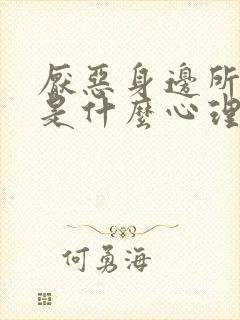 厭惡身邊所
是什麼心理
何勇海